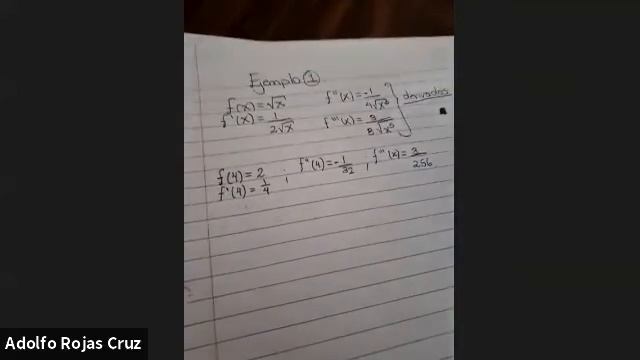 Ejemplo 1
f(x) = √x
f'(x) = 1/2√x
f''(x) = -1/4√x³
f'''(x) = 3/8√x⁵
derivadas
f(4) = 2
f'(4) = 1/4
; f''(4) = -1/32
; f'''(x) = 3/256
Adolfo Rojas Cruz